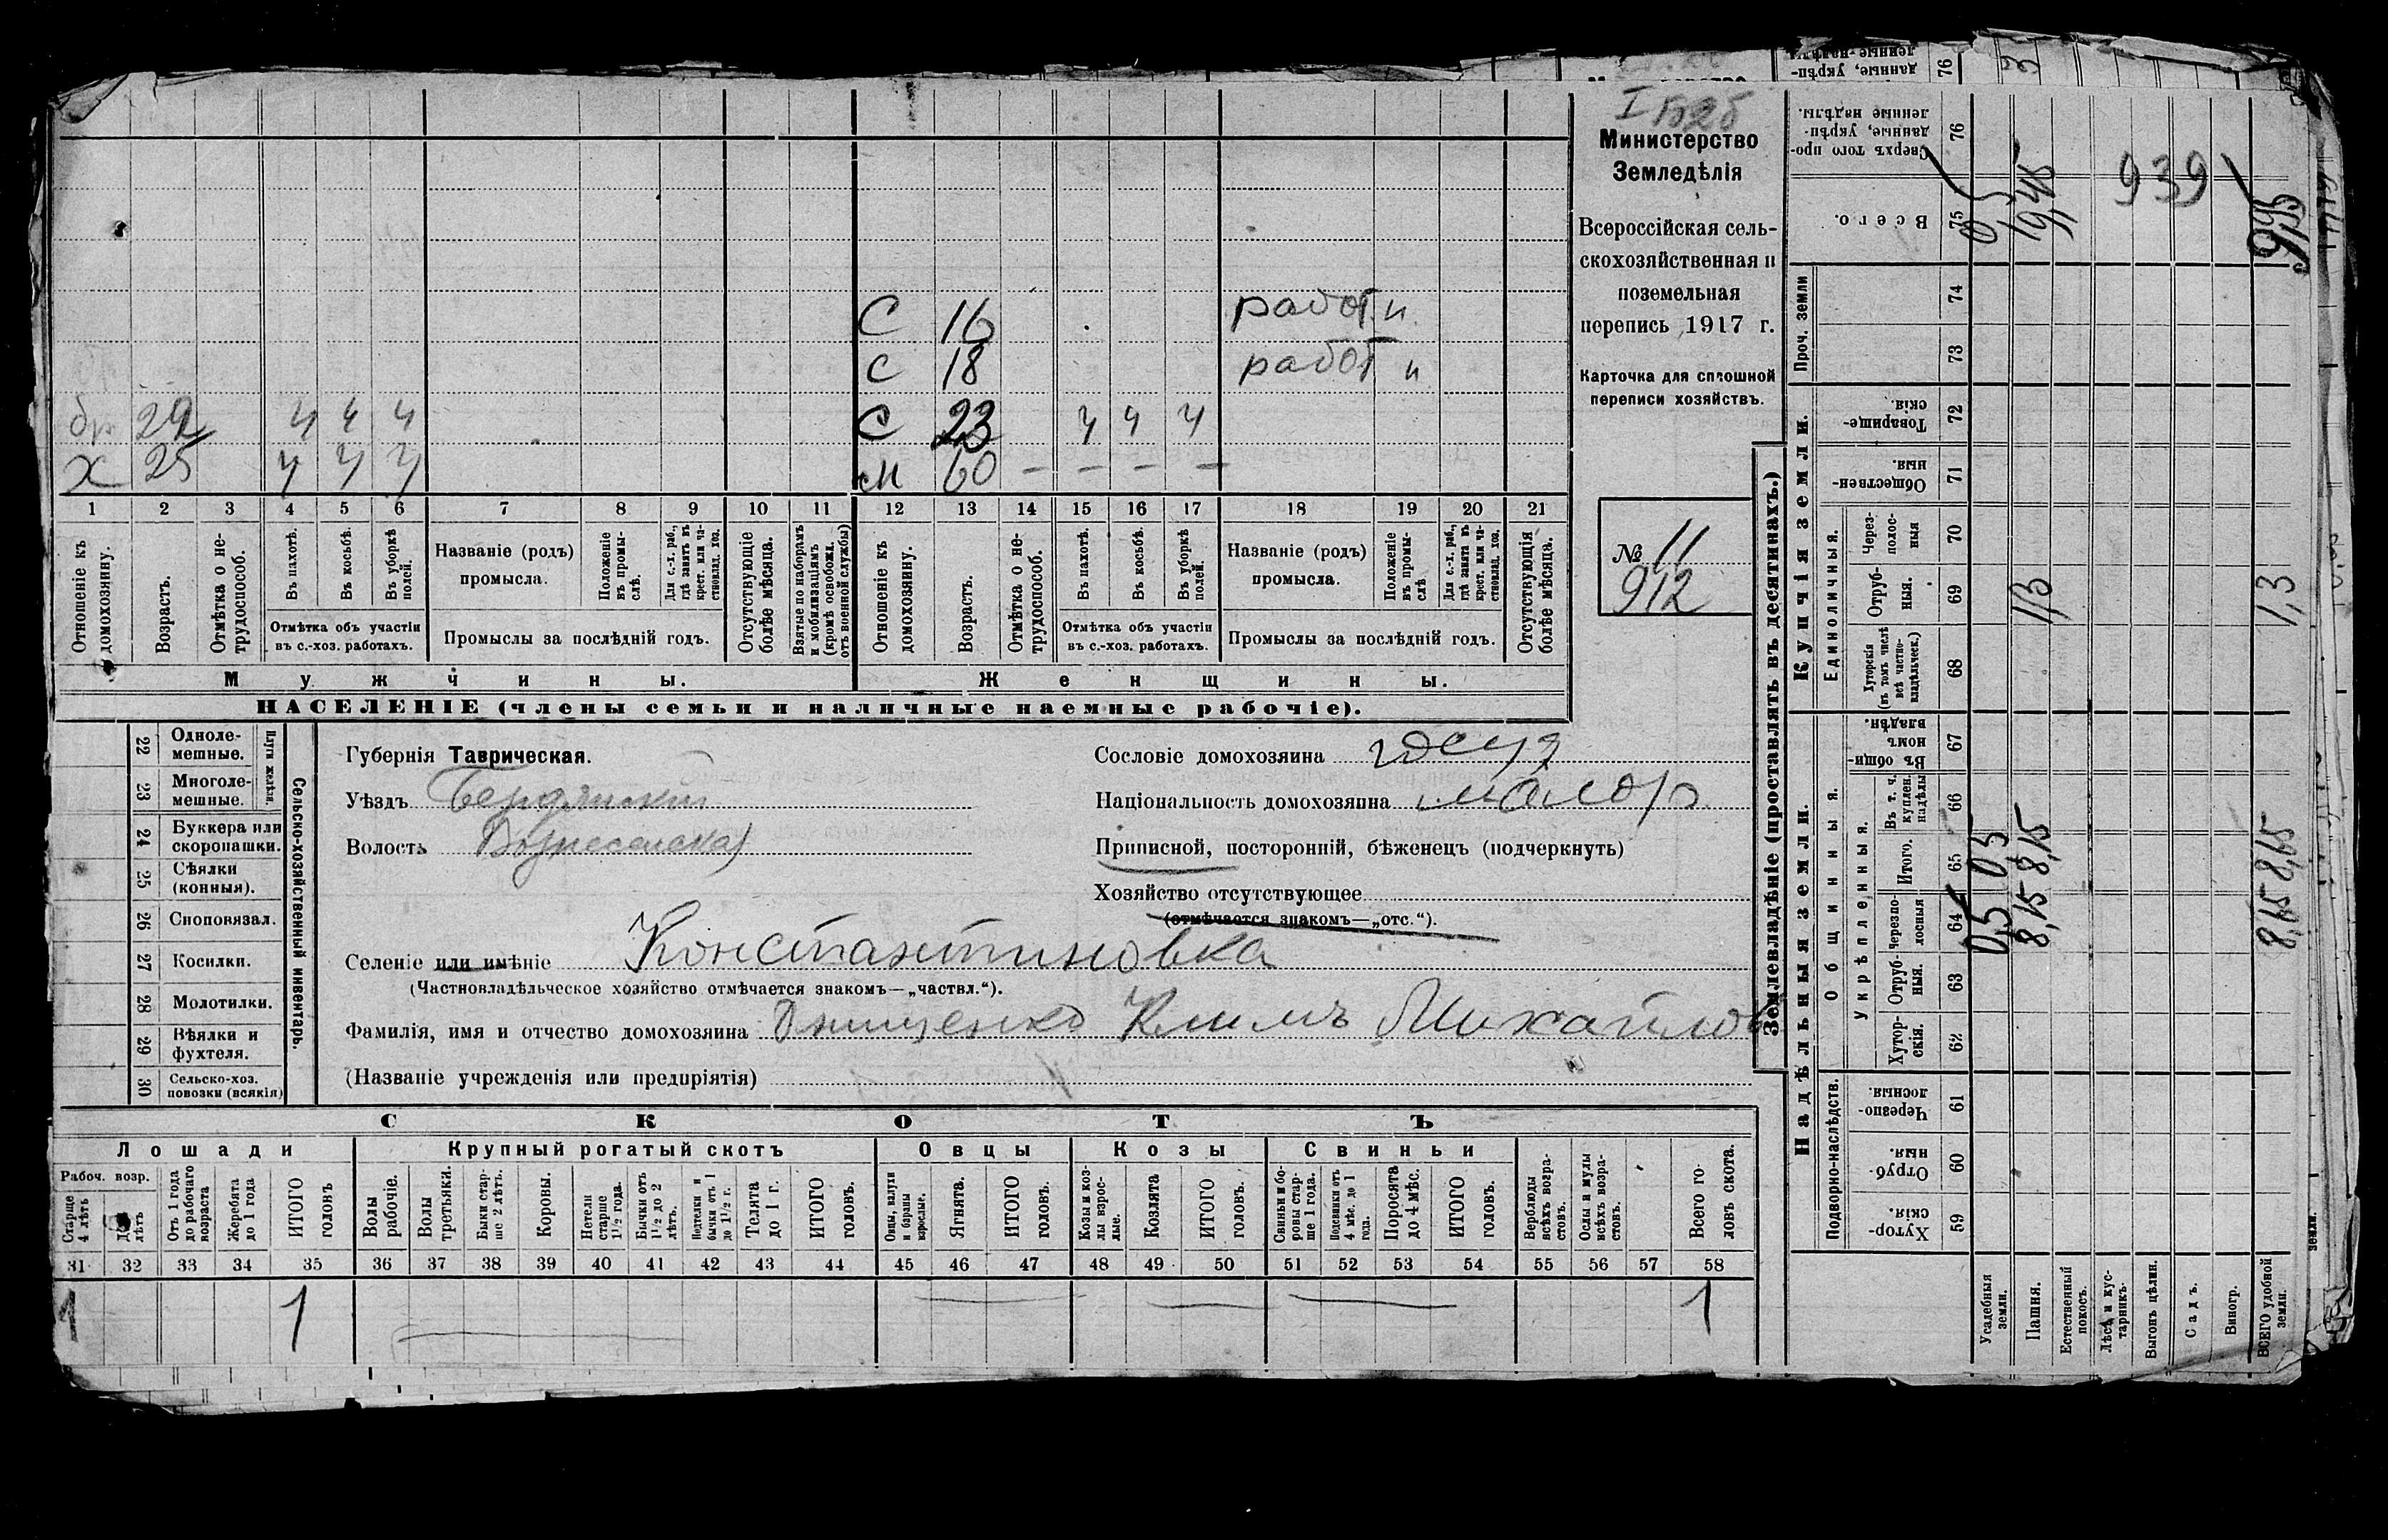 Министерство
Земледѣлія
Всероссійская сель-
скохозяйственная и
поземельная
перепись 1917 г.
Карточка для сплошной
переписи хозяйствъ.
№ 11
912
С 16 работ. и.
С 18 работ и
бр 22 ч ч ч С 23 ч ч ч
Х 25 ч ч ч М 60 – – – –
1 2 3 4 5 6 7 8 9 10 11 12 13 14 15 16 17 18 19 20 21
Отношеніе къ домохозяину.
Возрастъ.
Отмѣтка о не-трудоспособ.
Въ пахотѣ.
Въ косьбѣ.
Въ уборкѣ полей.
Отмѣтка объ участіи
въ с.-хоз. работахъ.
Названіе (родъ)
промысла.
Положеніе въ промы-слѣ.
Для с.-х. раб., гдѣ занятъ въ крест. или ча-стновлад. хоз.
Промыслы за послѣдній годъ.
Отсутствующіе болѣе мѣсяца.
Взятые по наборамъ и мобилизаціямъ (кромѣ освобожд. отъ военной службы)
Отношеніе къ домохозяину.
Возрастъ.
Отмѣтка о не-трудоспособ.
Въ пахотѣ.
Въ косьбѣ.
Въ уборкѣ полей.
Отмѣтка объ участіи
въ с.-хоз. работахъ.
Названіе (родъ)
промысла.
Положеніе въ промы-слѣ
Для с.-х. раб., гдѣ занята въ крест. или ча-стновлад. хоз.
Промыслы за послѣдній годъ.
Отсутствующія болѣе мѣсяца.
Мужчины. Женщины.
НАСЕЛЕНІЕ (члены семьи и наличные наемные рабочіе).
22 Одноле-мешные.
23 Многоле-мешные.
Плуги желѣзн.
24 Буккера или скоропашки.
25 Сѣялки (конныя).
26 Сноповязал.
27 Косилки.
28 Молотилки.
29 Вѣялки и фухтеля.
30 Сельско-хоз. повозки (всякія)
Сельско-хозяйственный инвентарь.
Губернія Таврическая.
Уѣздъ Бердянскій
Волость Вознесенская
Сословіе домохозяина
Національность домохозяина малор
Приписной, посторонній, бѣженецъ (подчеркнуть)
Хозяйство отсутствующее
(отмѣчается знакомъ—„отс.“).
Селеніе или имѣніе Константиновка
(Частновладѣльческое хозяйство отмѣчается знакомъ—„частвл.“).
Фамилія, имя и отчество домохозяина Онищенко Климъ Михайлов
(Названіе учрежденія или предпріятія)
СКОТЪ
Лошади Крупный рогатый скотъ Овцы Козы Свиньи
Рабоч. возр.
Старше 4 лѣтъ
До лѣтъ
Отъ 1 года до рабочаго возраста
Жеребята до 1 года
ИТОГО головъ
Волы рабочіе.
Волы третьяки.
Быки стар-ше 2 лѣтъ.
Коровы.
Нетели старше 1½ года.
Бычки отъ 1½ до 2 лѣтъ.
Подтелки и бычки отъ 1 до 1½ г.
Телята до 1 г.
ИТОГО головъ.
Овцы, валухи и бараны взрослые.
Ягнята.
ИТОГО головъ.
Козы и коз-лы взрос-лые.
Козлята
ИТОГО головъ.
Свиньи и бо-ровы стар-ше 1 года.
Подсвинки отъ 4 мѣс. до 1 года.
Поросята до 4 мѣс.
ИТОГО головъ.
Верблюды всѣхъ возра-стовъ.
Ослы и мулы всѣхъ возра-стовъ.
Всего го-ловъ скота.
31 32 33 34 35 36 37 38 39 40 41 42 43 44 45 46 47 48 49 50 51 52 53 54 55 56 57 58
1 1 1
Землевладѣніе (проставлять въ десятинахъ.)
Надѣльныя земли. Купчія земли. Проч. земли
Подворно-наслѣдств. Общинныя. Единоличныя.
Укрѣпленныя.
Хутор-скія. 59
Отруб-ныя. 60
Черезпо-лосныя. 61
Хутор-скія. 62
Отруб-ныя. 63
черезпо-лосныя 64
Итого. 65
Въ т. ч. куплен. надѣлы 66
Въ общи-номъ владѣн. 67
Хуторскія (въ томъ числѣ всѣ частно-владѣльческ.) 68
Отруб-ныя. 69
Через-полос-ныя 70
Обществен-ныя. 71
Товарище-скія. 72
73
74
Всего. 75
Сверхъ того про-данные, укрѣп-ленные надѣлы. 76
Усадебныя земли. 0,5 0,5 0,5
Пашня. 8,15 8,15 1,3 9,45
Естественный покосъ.
Лѣсъ и кус-тарникъ.
Выгонъ цѣлин.
Садъ.
Виногр.
ВСЕГО удобной земли. 8,65 8,65 1,3
939